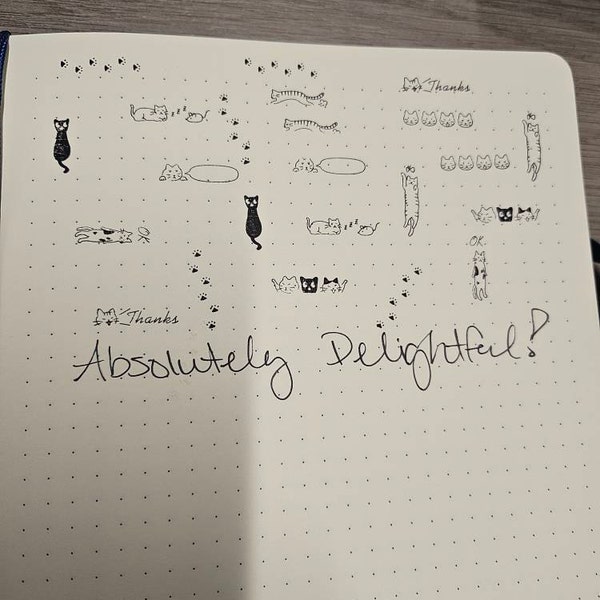 Thanks
zzz
zzz
OK
OK
Thanks
Absolutely Delightful!